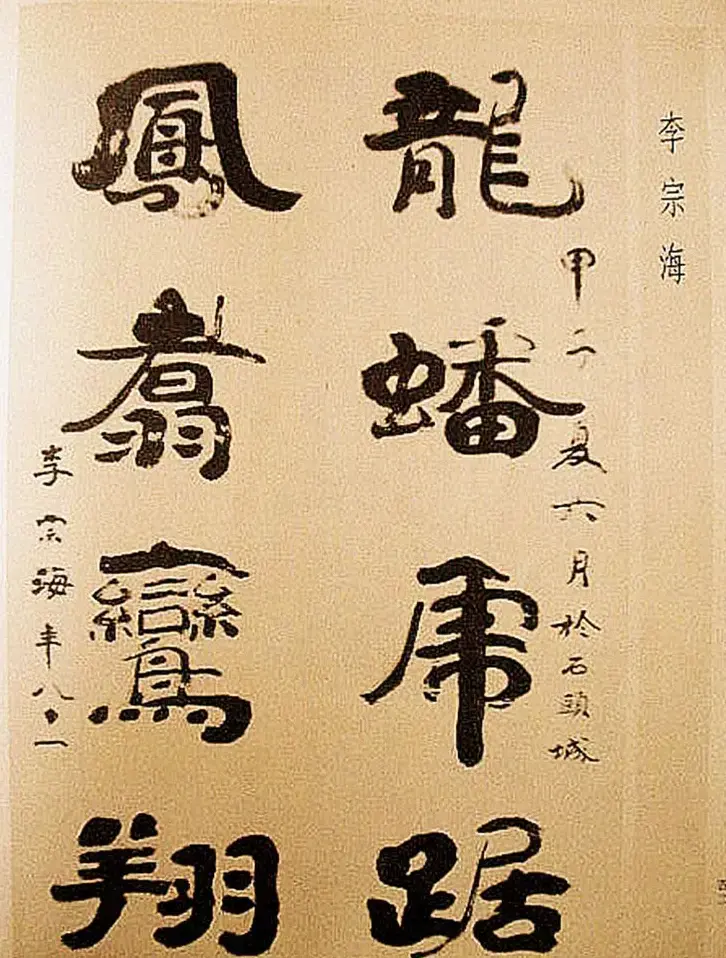 李宗海
甲子夏六月於石頭城
龍蟠虎踞
鳳翥鸞翔
李宗海年八·一